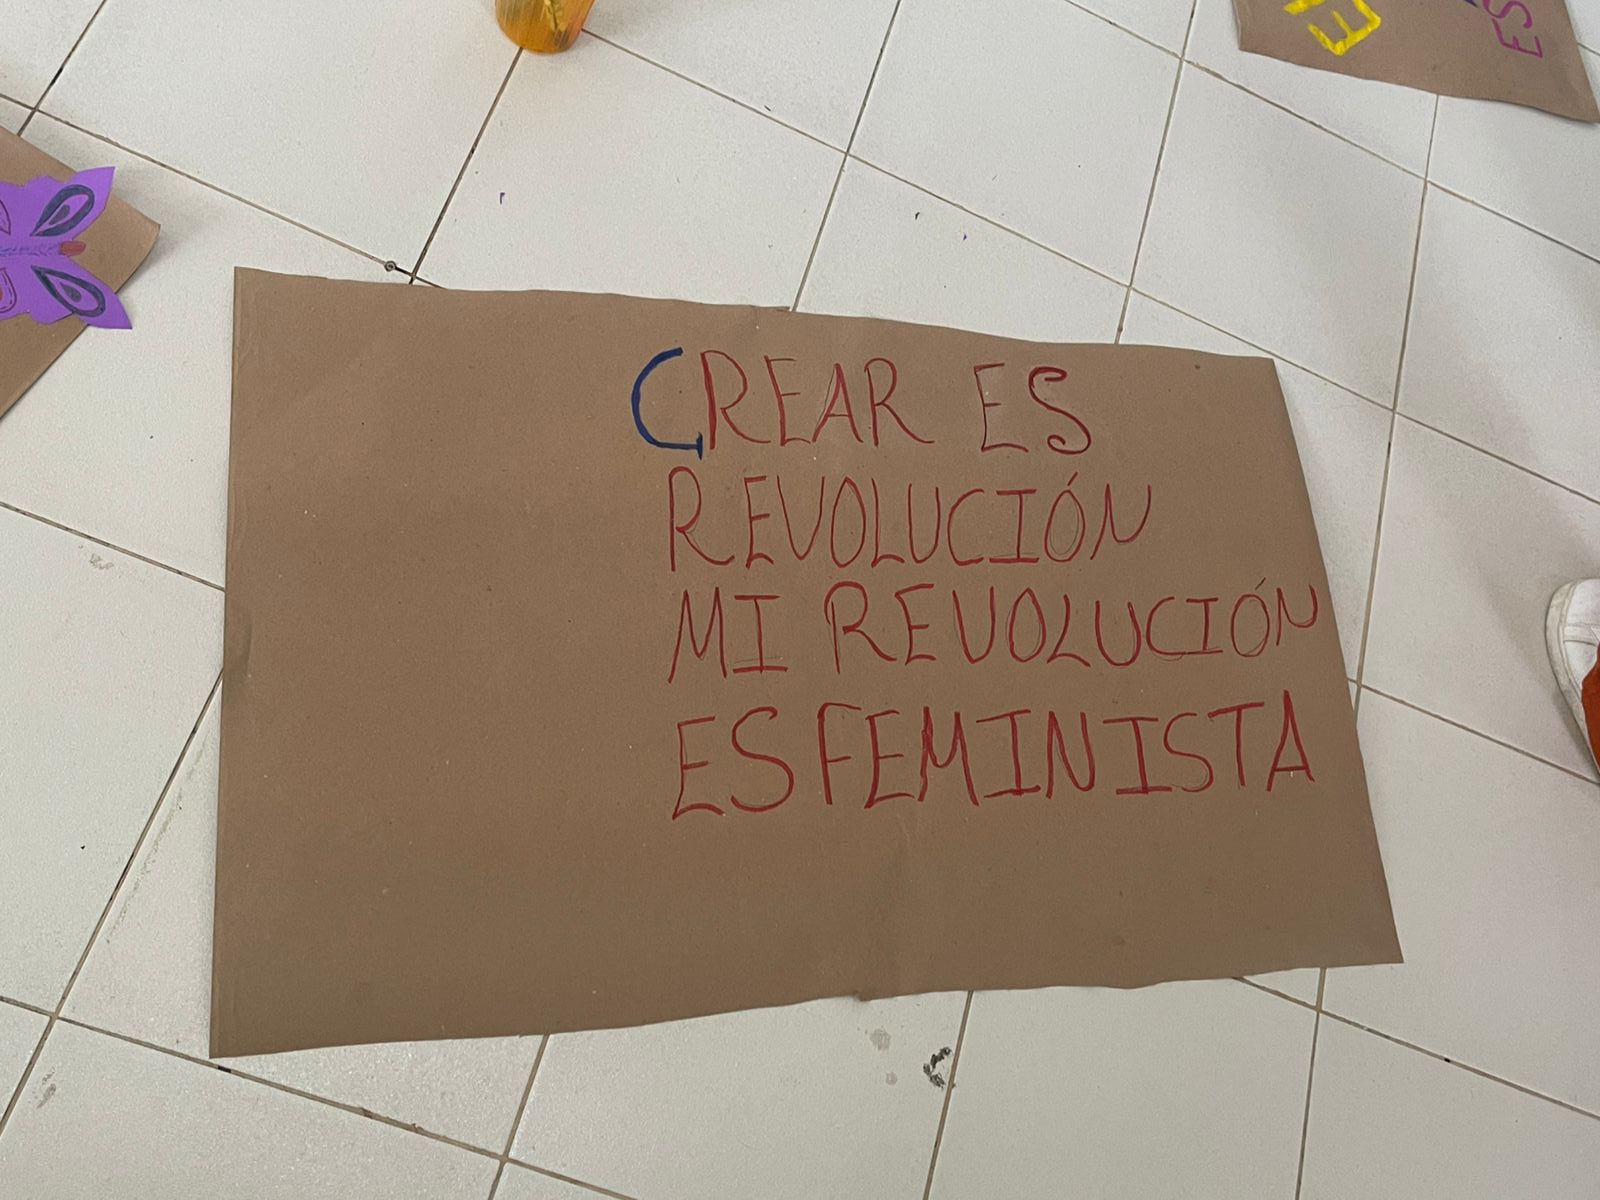 CREAR ES
REVOLUCIÓN
MI REVOLUCIÓN
ES FEMINISTA
ES